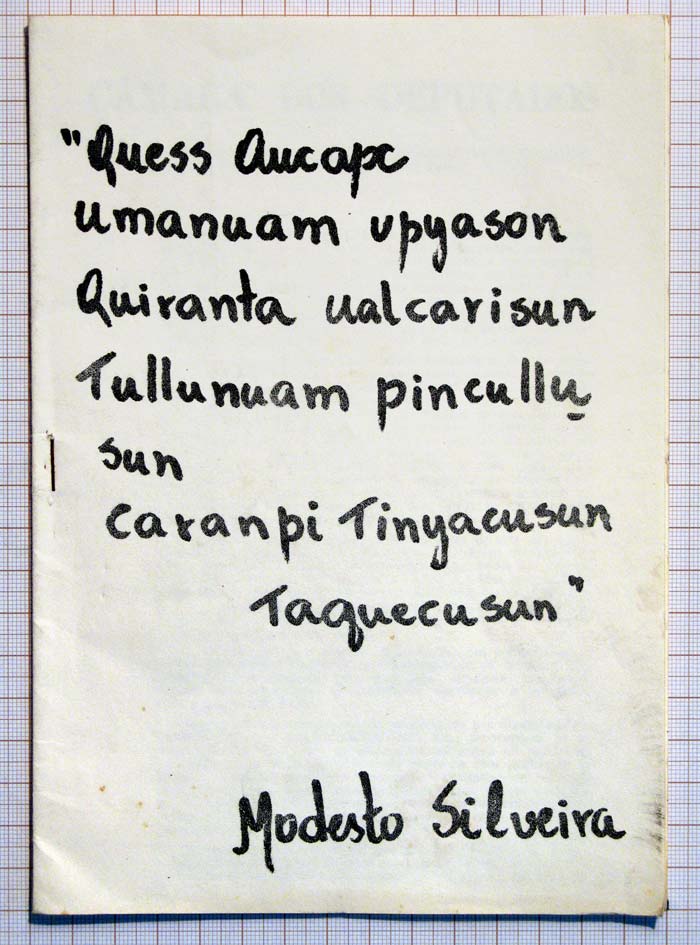 "Quess Aucapx
umanuam upyason
Quiranta ualcarisun
Tullunuam pincullu
sun
caranpi Tinyacusun
Taquecusun"
Modesto Silveira